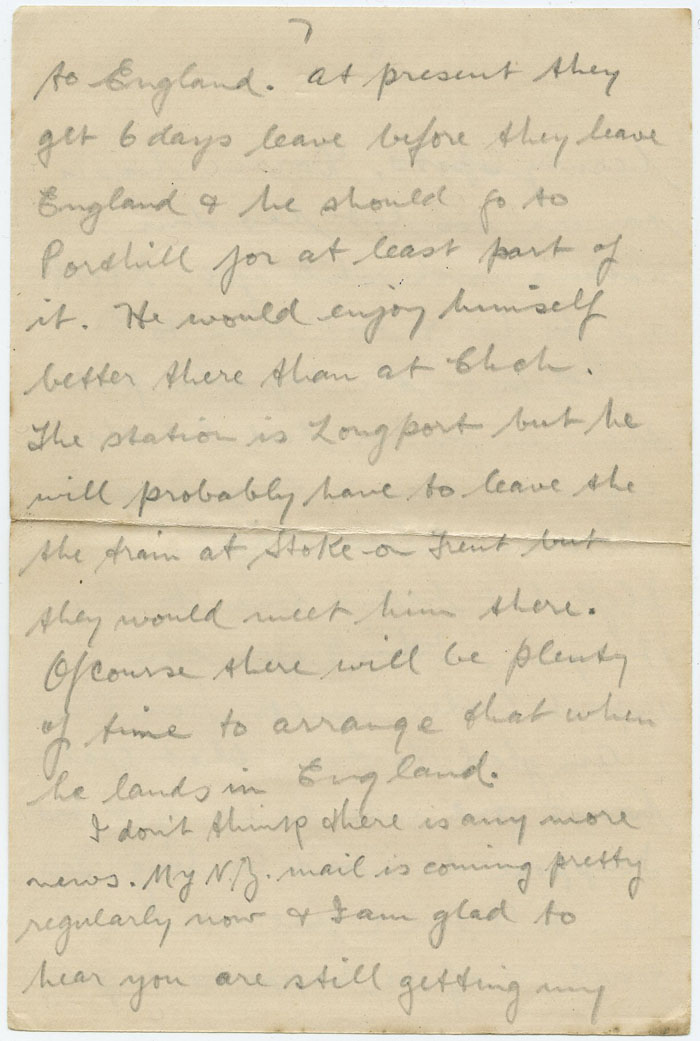 7
to England. At present they
get 6 days leave before they leave
England & he should go to
Porthill for at least part of
it. He would enjoy himself
better there than at Chch.
The station is Longport but he
will probably have to leave the
the train at Stoke-on Trent but
they would meet him there.
Ofcourse there will be plenty
of time to arrange that when
he lands in England.
I don't think there is any more
news. My N.Z. mail is coming pretty
regularly now & I am glad to
hear you are still getting my